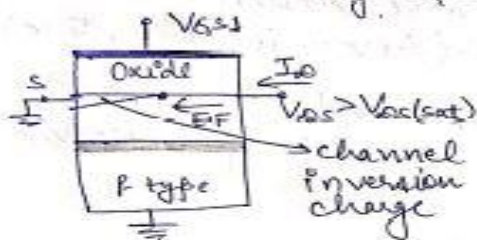 VGS1
Oxide
ID
S
VDS > VDS(sat)
E.F
channel
inversion
charge
P type